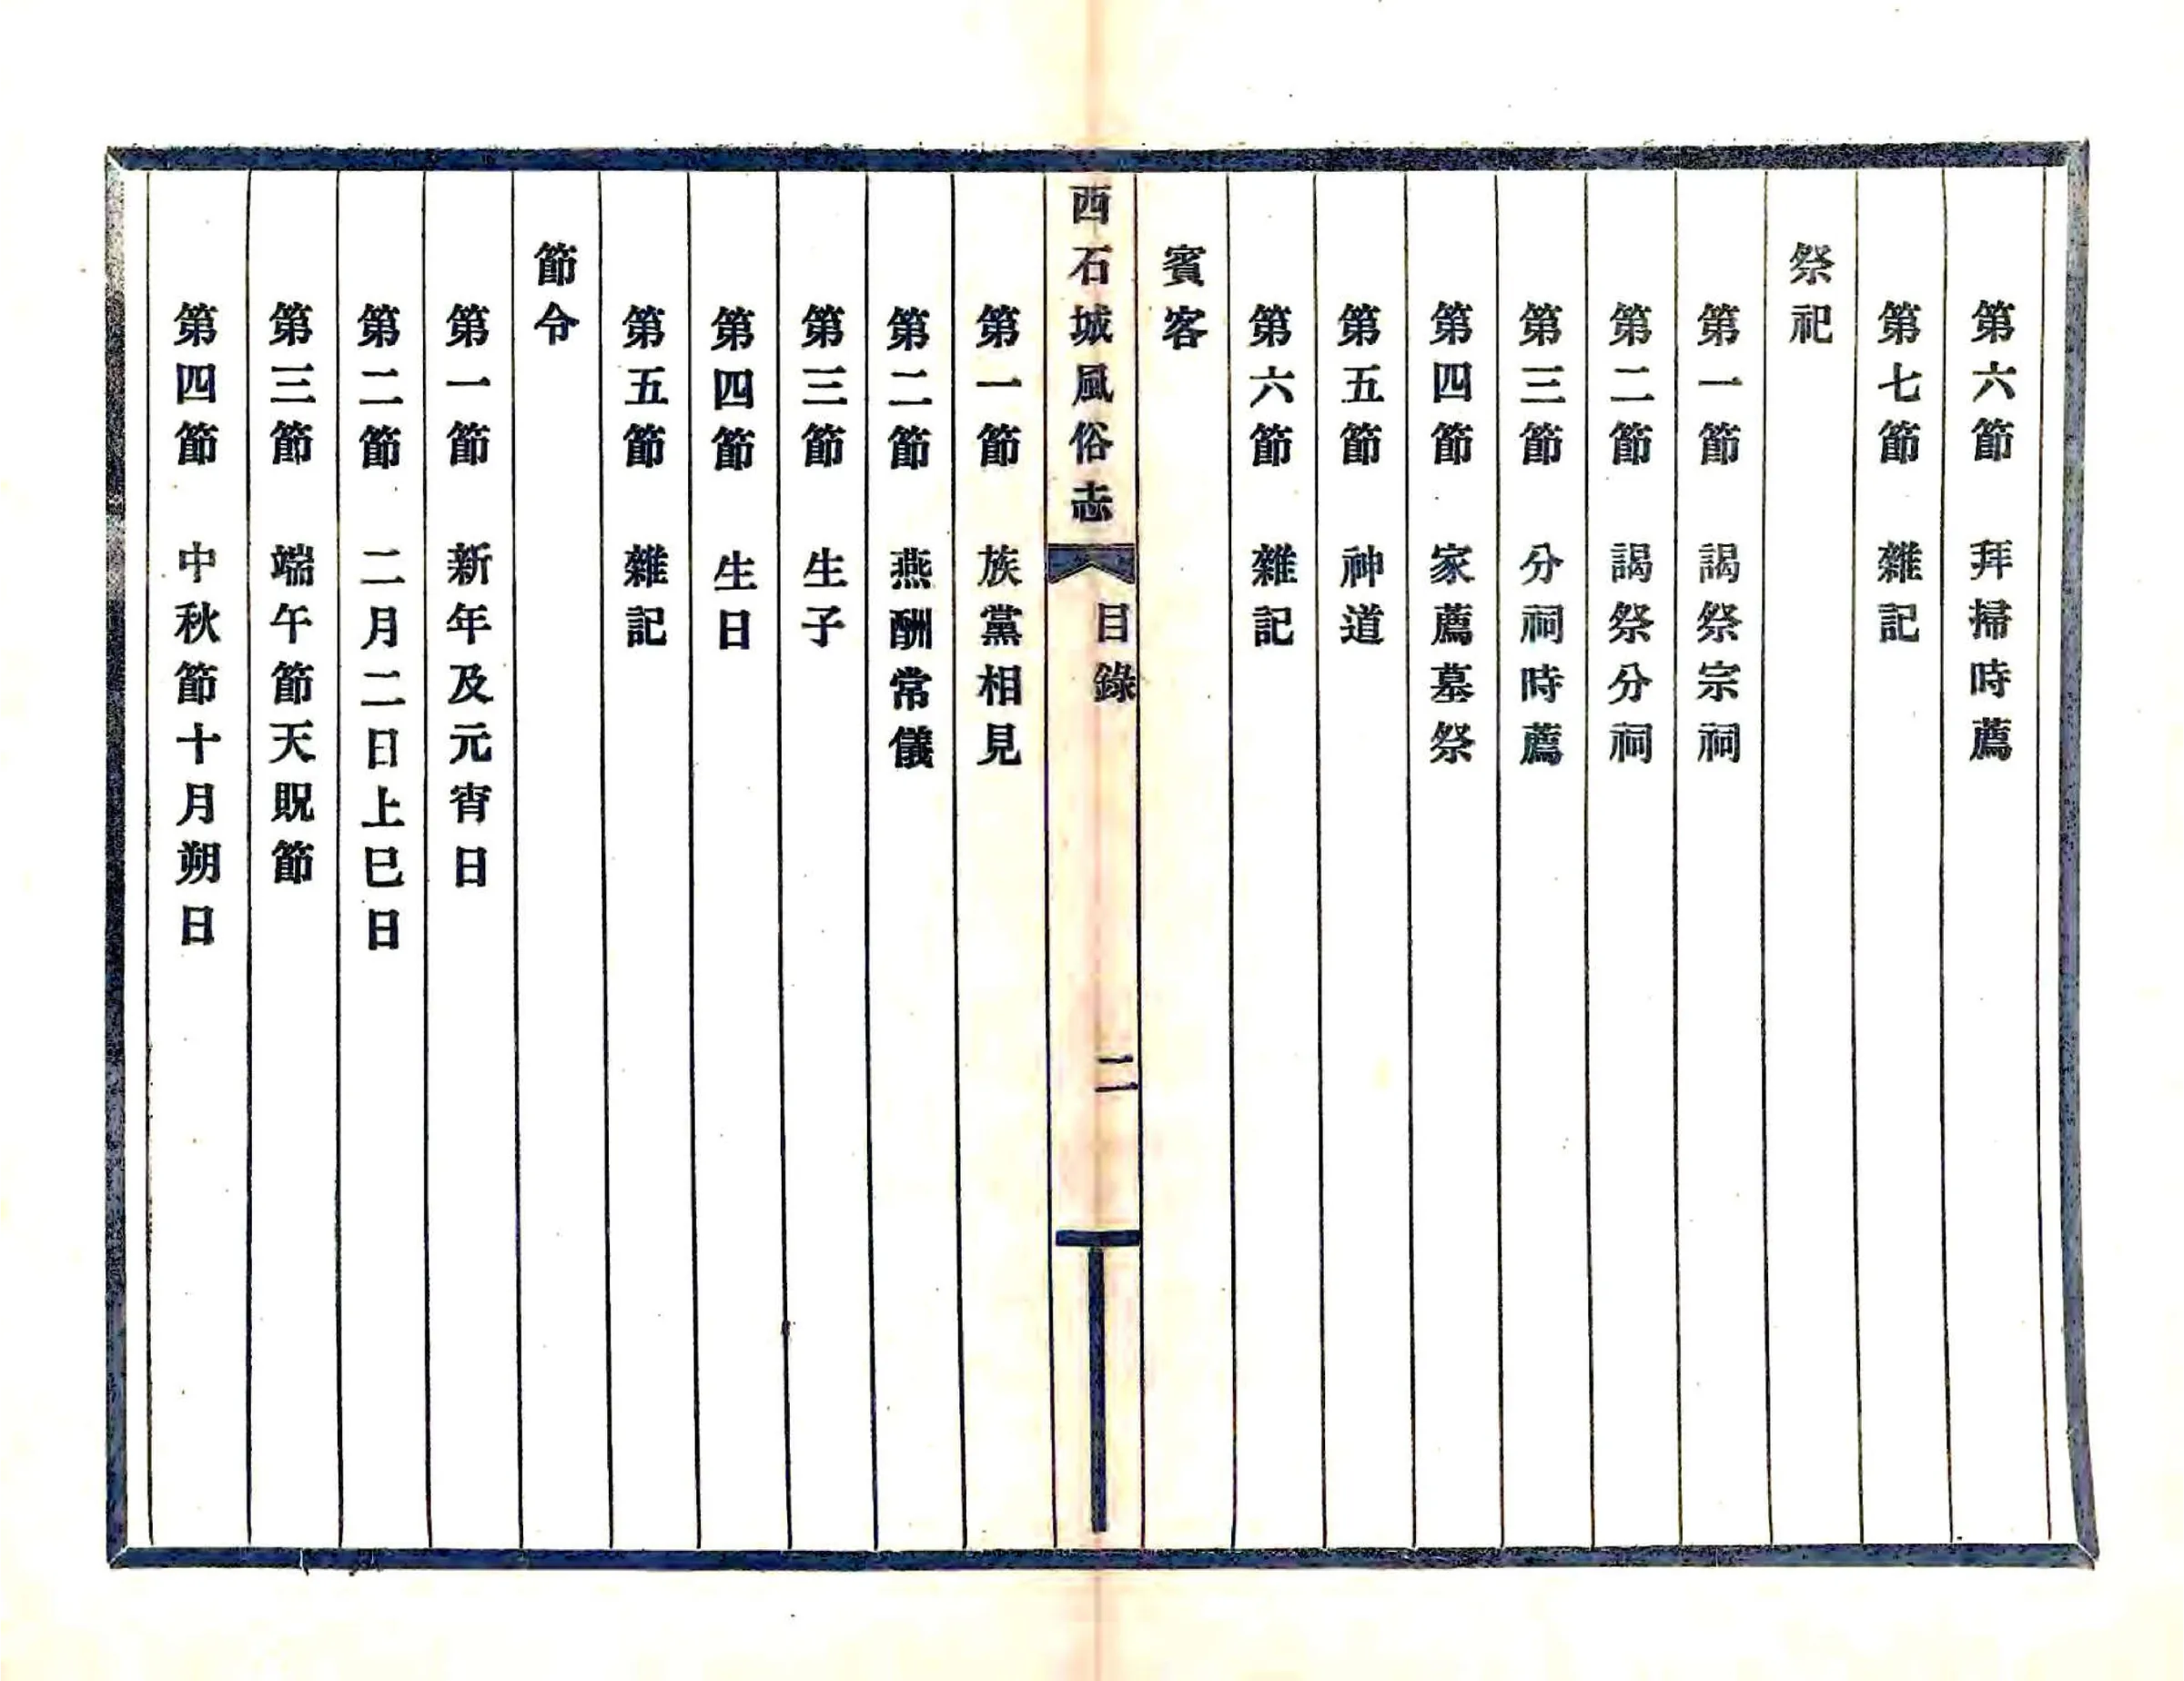 第六節 拜掃時薦
第七節 雜記
祭祀
第一節 謁祭宗祠
第二節 謁祭分祠
第三節 分祠時薦
第四節 家薦墓祭
第五節 神道
第六節 雜記
賓客
西石城風俗志 目錄 二
第一節 族黨相見
第二節 燕酬常儀
第三節 生子
第四節 生日
第五節 雜記
節令
第一節 新年及元宵日
第二節 二月二日上巳日
第三節 端午節天貺節
第四節 中秋節十月朔日